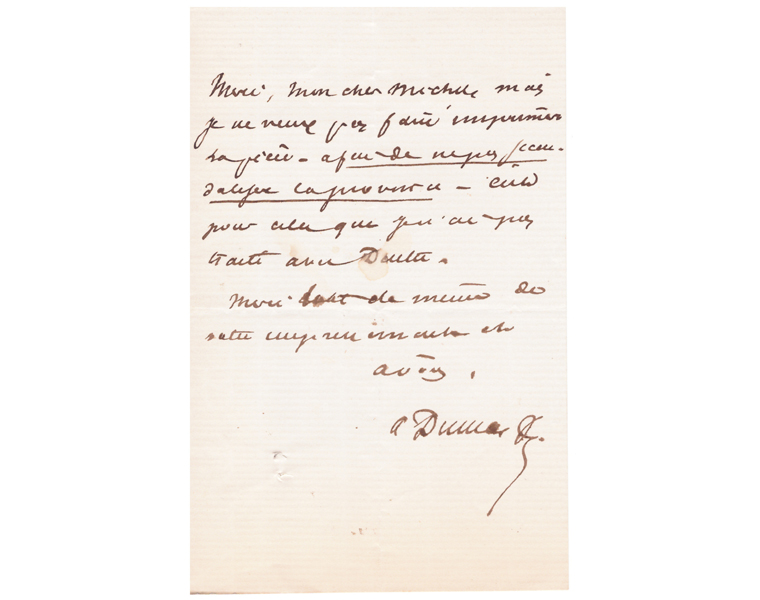 Merci, mon cher Michel, mais
je ne veux pas faire imprimer
la pièce - afin de ne pas scan-
daliser la province - c'est
pour cela que je n'ai pas
traité avec Dentu.
Merci tout de même de
votre empressement et
à vous.
A Dumas f.